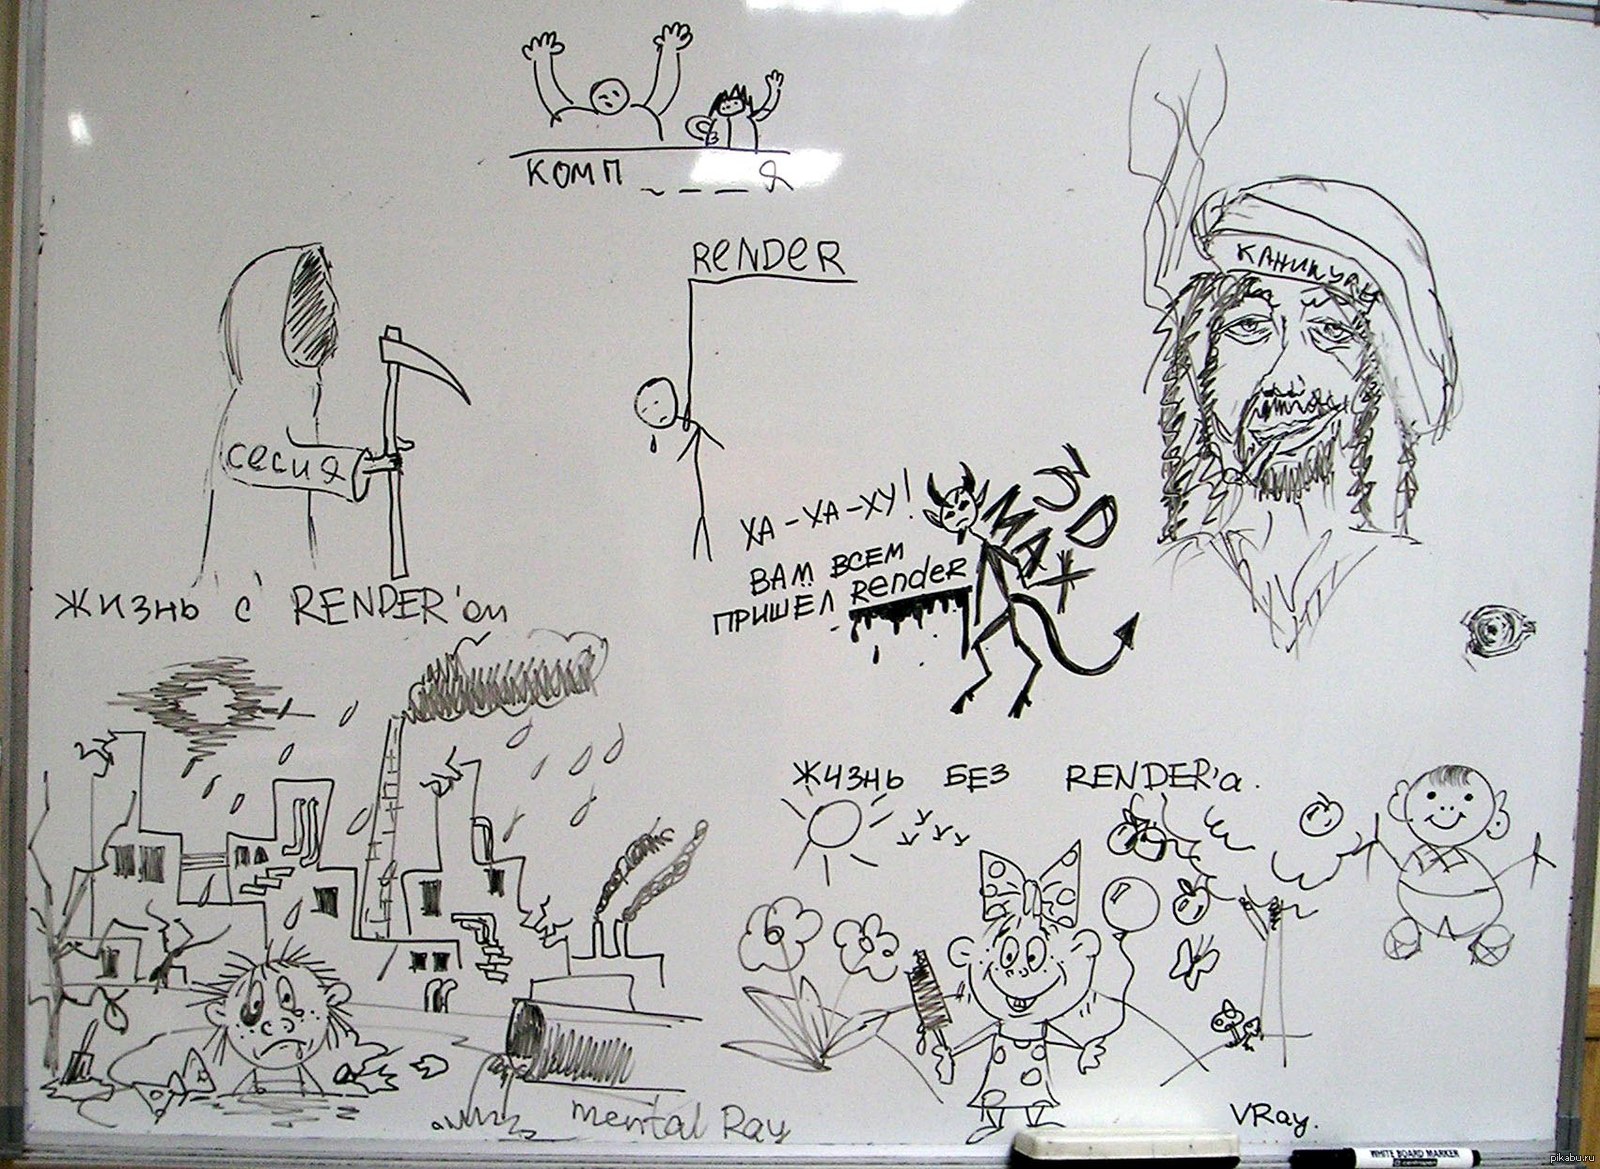 КОМП _ _ _ _ Я
RENDER
КАНИКУЛЫ
СЕСИЯ
ХА-ХА-ХУ!
ВАМ ВСЕМ
ПРИШЕЛ RENDER
3D
MAX
ЖИЗНЬ С RENDER'ом
ЖИЗНЬ БЕЗ RENDER'а.
mental Ray
VRay.
WHITE BOARD MARKER
centropen
pikabu.ru